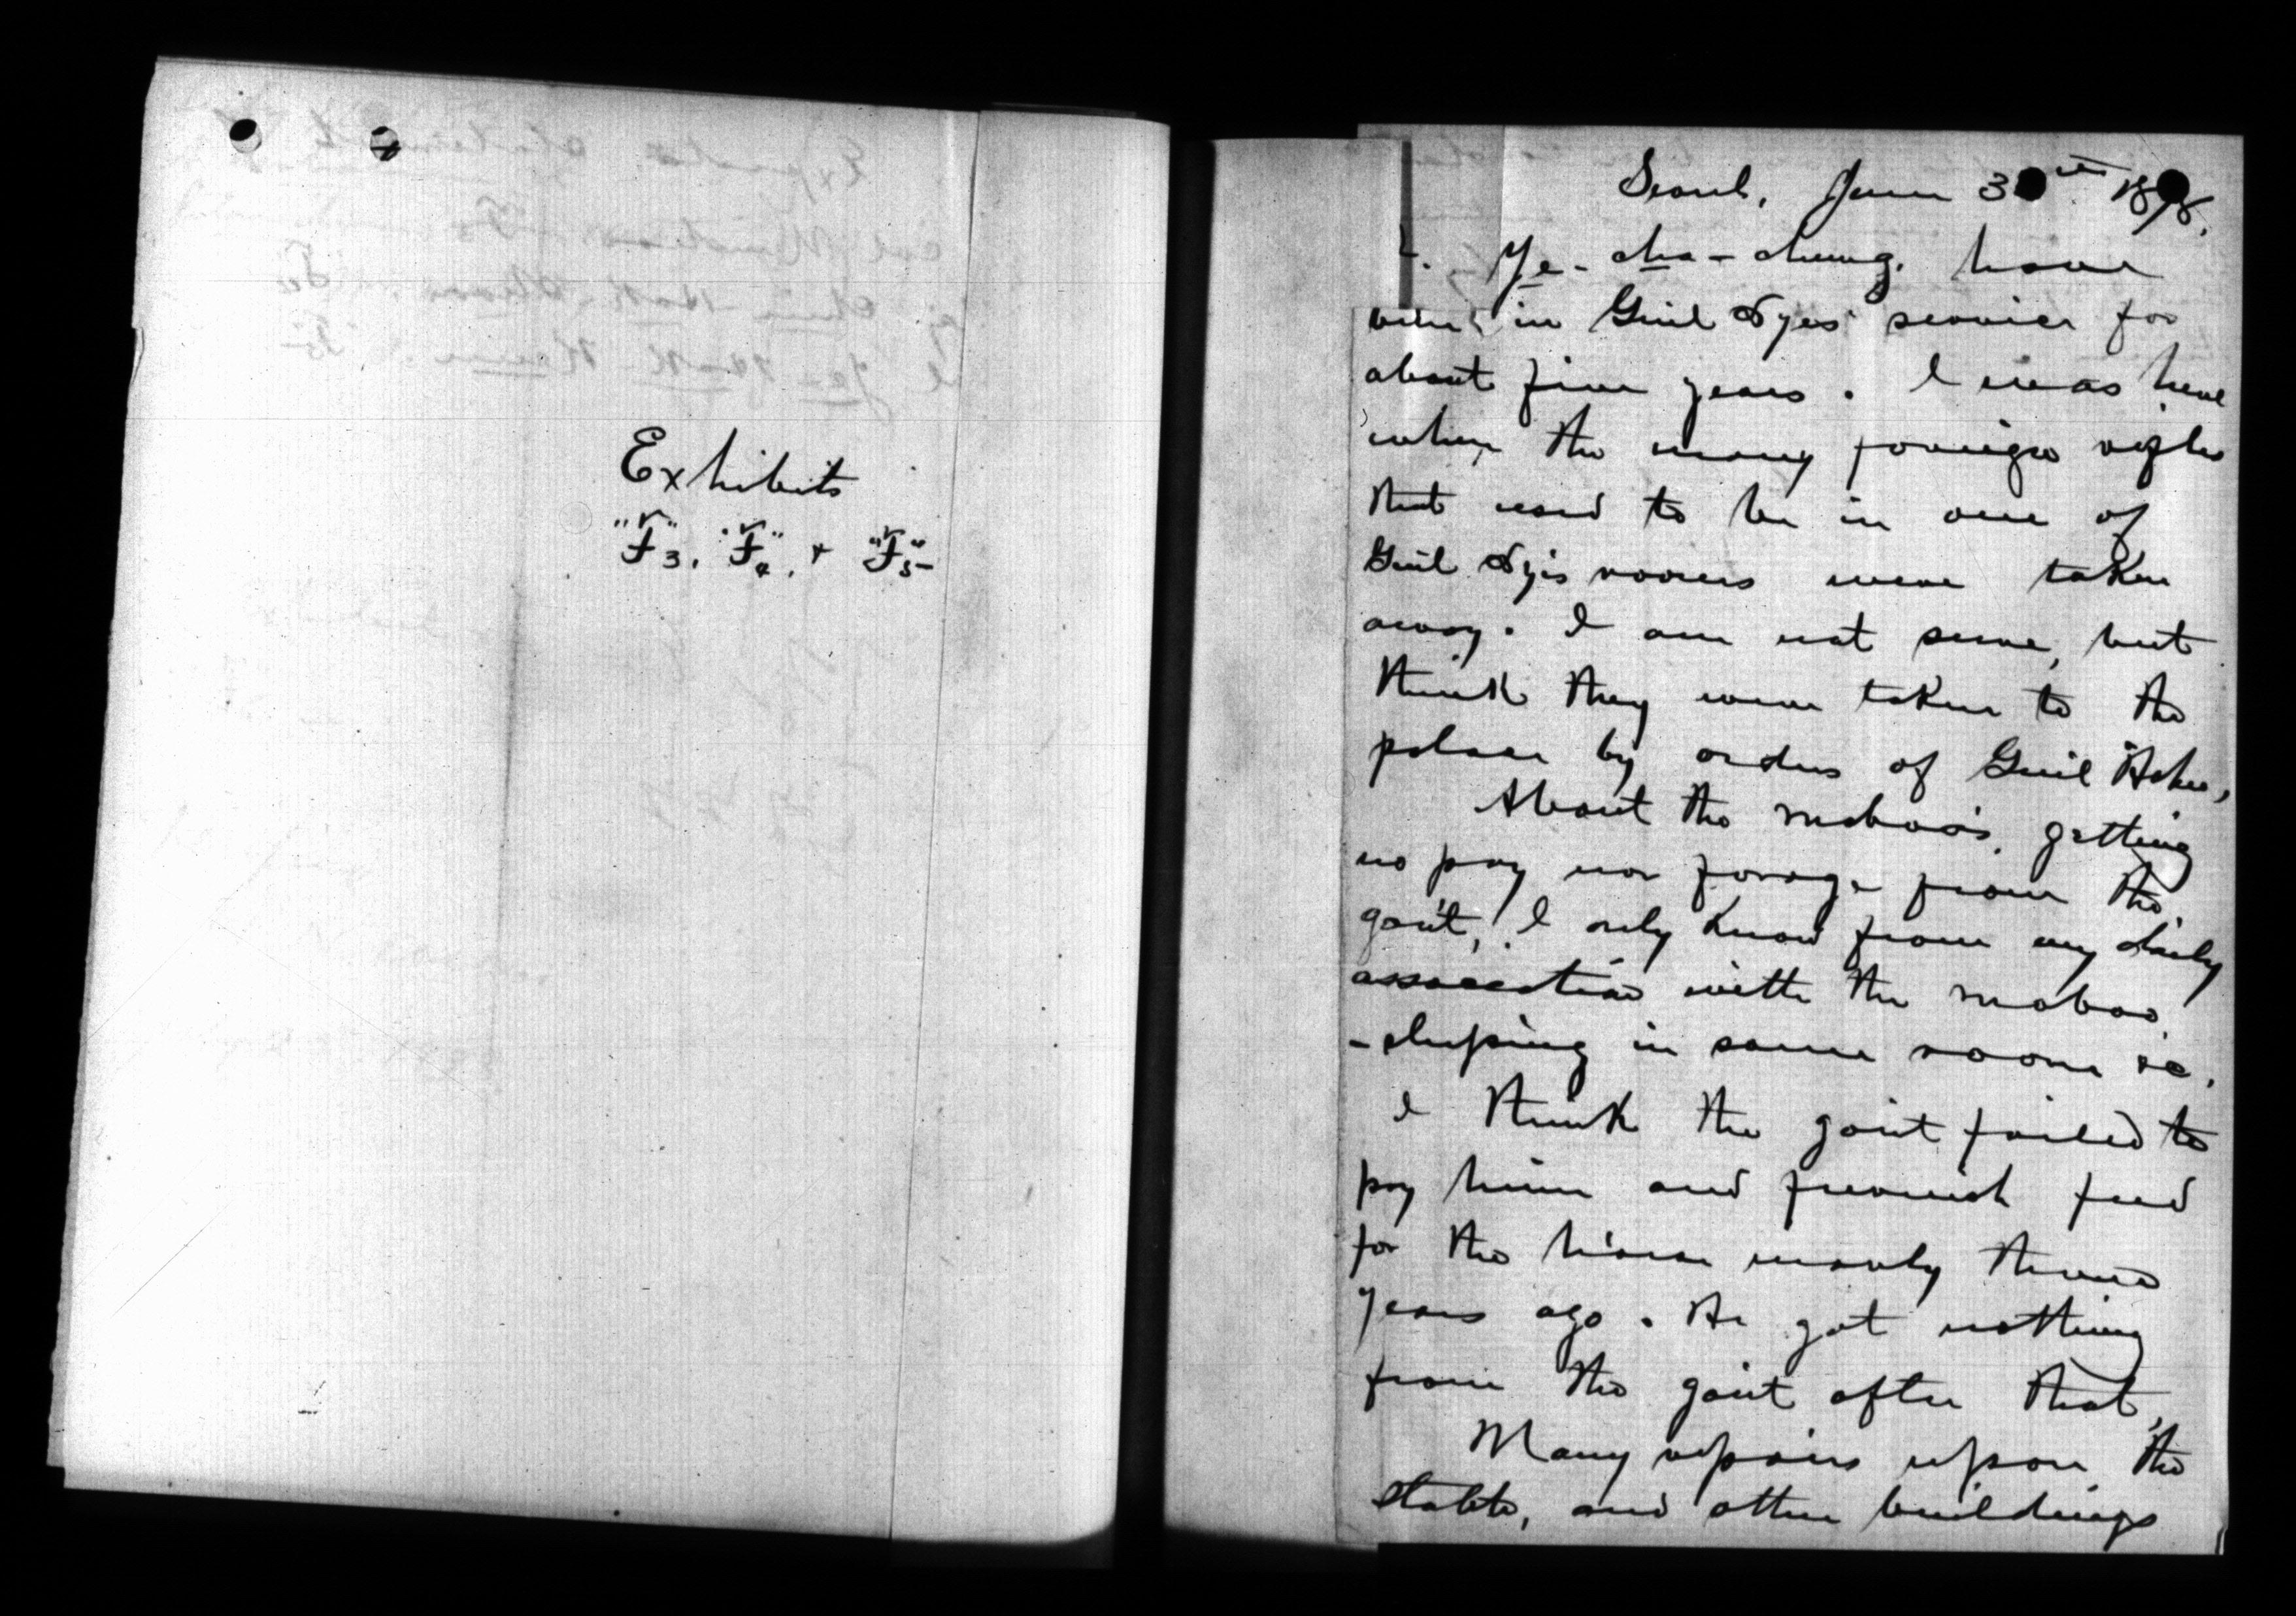 Exhibits
"F"3, "F"4, + "F"5
Seoul, June 30th 1898.
I. Ye-cha-chung. have
been in Genl Dyes' service for
about five years. I was here
when the many foreign rifles
that used to be in one of
Genl Dye's rooms were taken
away. I am not sure, but
think they were taken to the
palace by orders of Genl
About the maboo's getting
no pay nor forage from the
gov't, I only know from my daily
association with the maboo
- sleeping in same room &c.
I think the gov't failed to
pay him and furnish feed
for the horse nearly three
years ago. He got nothing
from the gov't after that,
Many repairs upon the
stable, and other buildings